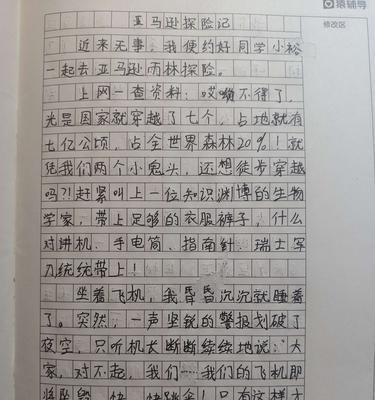 猿辅导
修改区
亚马逊探险记
近来无事，我便约好同学小裕
一起去亚马逊雨林探险。
上网一查资料：哎哟不得了，
光是国家就穿越了七个，占地就有
七亿公顷，占全世界森林20%！就
凭我们两个小鬼头，还想徒步穿越
吗?!赶紧叫上一位知识渊博的生物
学家，带上足够的衣服裤子，什么
对讲机、手电筒、指南针、瑞士军
刀统统带上！
坐着飞机，我昏昏沉沉就睡着
了。突然，一声坚锐的警报划破了
夜空，只听机长断断续续地说：“大
家，对不起，我们……我们的飞机即
将坠毁，快，快跳伞！只有这样才